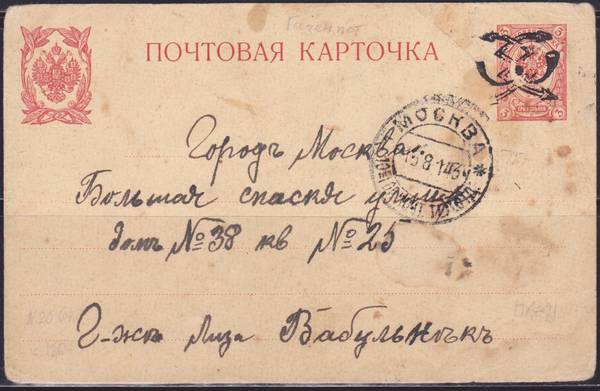 Гагенпот
ПОЧТОВАЯ КАРТОЧКА
3 3
3 3
МОСКВА
15 8 14
Городъ Москва
Большая спаская улица
домъ №38 кв №25
Г-жѣ Лиза Вабульнѣкъ